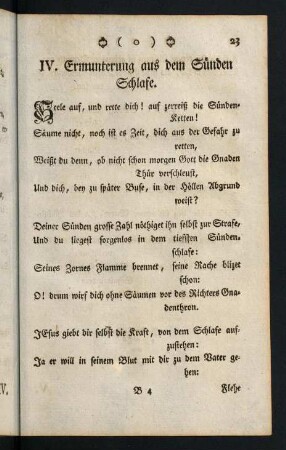 ( o ) 23
IV. Ermunterung aus dem Sünden
Schlafe.
Seele auf, und rette dich! auf zerreiß die Sünden-
Ketten!
Säume nicht, noch ist es Zeit, dich aus der Gefahr zu
retten,
Weißt du denn, ob nicht schon morgen Gott die Gnaden
Thür verschleust,
Und dich, bey zu später Buse, in der Höllen Abgrund
weist?
Deiner Sünden grosse Zahl nöthiget ihn selbst zur Strafe,
Und du liegest sorgenlos in dem tieffsten Sünden-
schlafe:
Seines Zornes Flamme brennet, seine Rache blizet
schon:
O! drum wirf dich ohne Säumen vor des Richters Gna-
denthron.
JEsus giebt dir selbst die Kraft, von dem Schlafe auf-
zustehen:
Ja er will in seinem Blut mit dir zu dem Vater ge-
hen:
B 4 Flehe
IV.